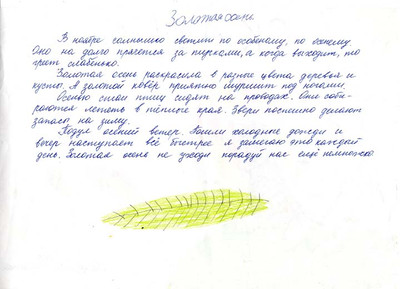 Золотая осень
В ноябре солнышко светит по особенному, по осеннему.
Оно на долго прячется за тучками, а когда выходит, то
греет слабенько.
Золотая осень раскрасила в разные цвета деревья и
кусты. А золотой ковёр приятно шуршит под ногами.
Осенью стаи птиц сидят на проводах. Они соби-
раются лететь в тёплые края. Звери постепенно делают
запасы на зиму.
Подул осенний ветер. Пошли холодные дожди и
вечер наступает всё быстрее я замечаю это каждый
день. Золотая осень не уходи порадуй нас ещё немножко.